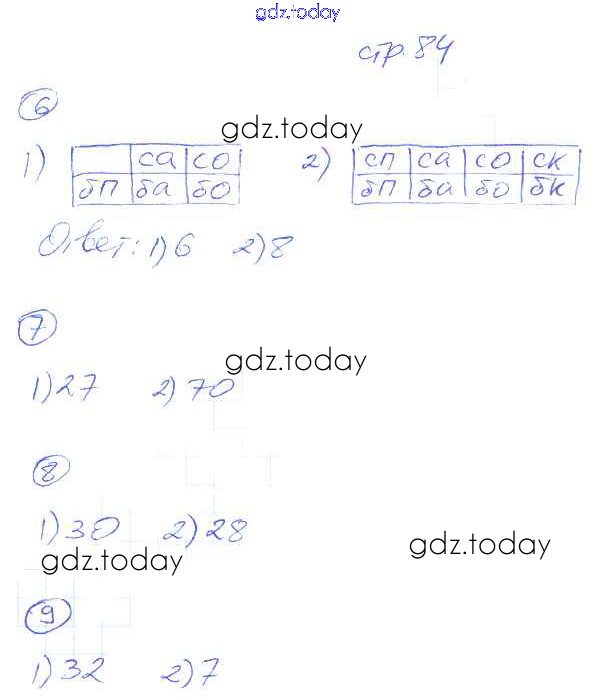 gdz.today
стр. 84
6
gdz.today
1) са со 2) сп са со ск
бп ба бо бп ба бо бк
Ответ: 1) 6 2) 8
7
gdz.today
1) 27 2) 70
8
1) 30 2) 28
gdz.today gdz.today
9
1) 32 2) 7